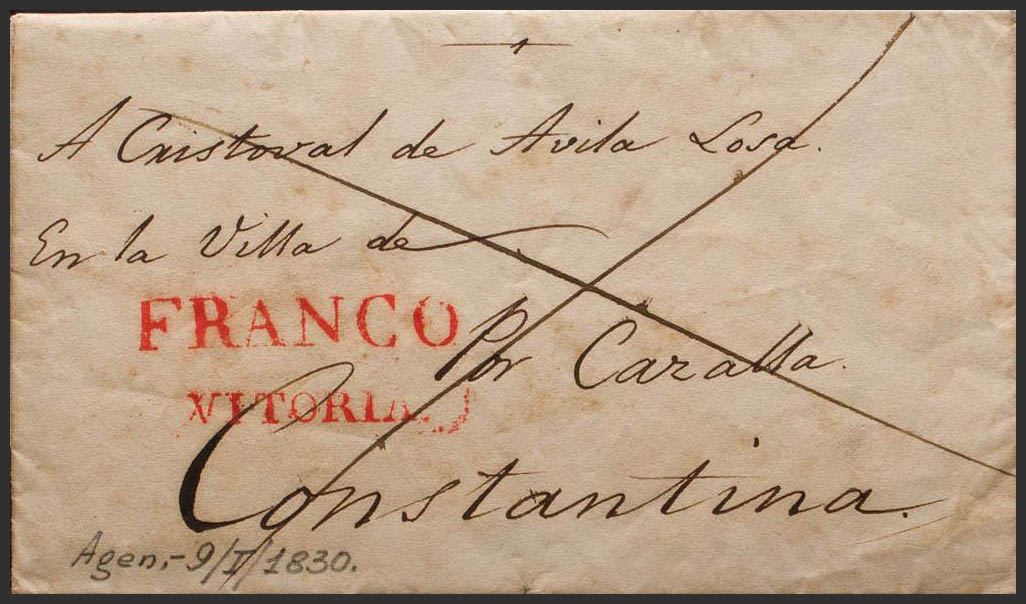 A Cristoval de Avila Losa.
En la Villa de
FRANCO
Por Cazalla.
VITORIA.
Constantina.
Agen,- 9/I/1830.